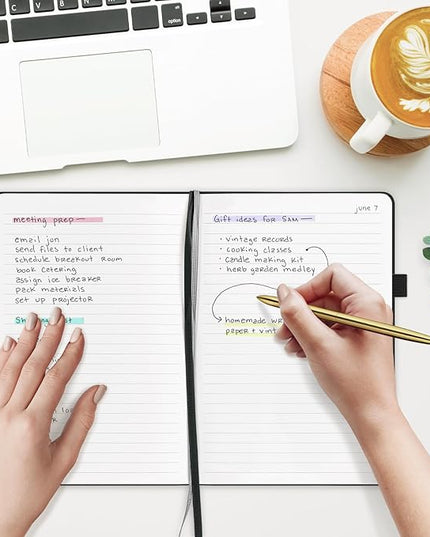 option
meeting prep —
email jon
send files to client
schedule breakout room
book catering
assign ice breaker
pack materials
set up projector
june 7
Gift ideas for Sam —
• vintage records
• cooking classes
• candle making kit
• herb garden medley
homemade
paper +